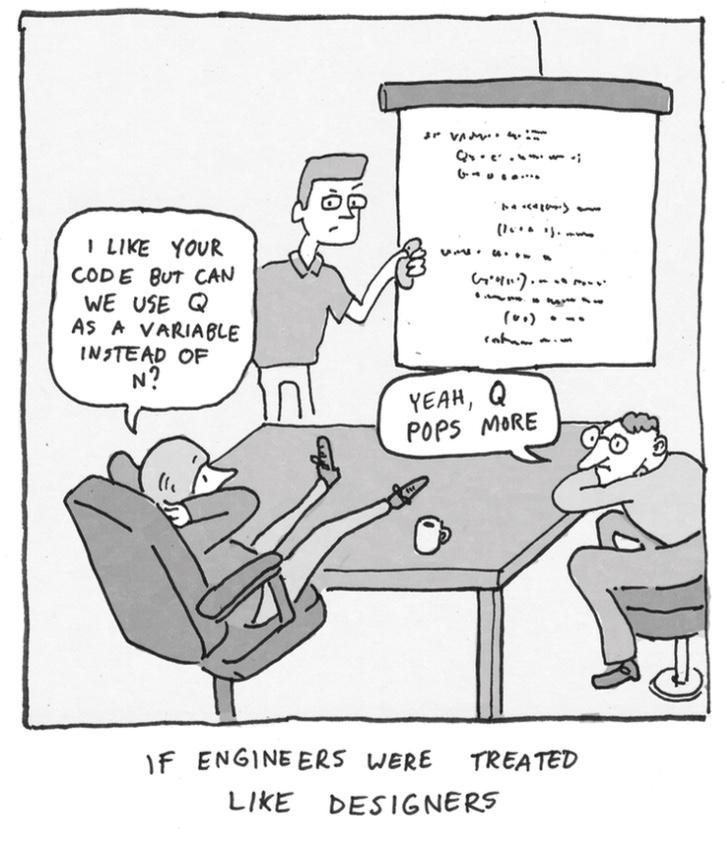 I LIKE YOUR
CODE BUT CAN
WE USE Q
AS A VARIABLE
INSTEAD OF
N?
YEAH, Q
POPS MORE
IF ENGINEERS WERE TREATED
LIKE DESIGNERS